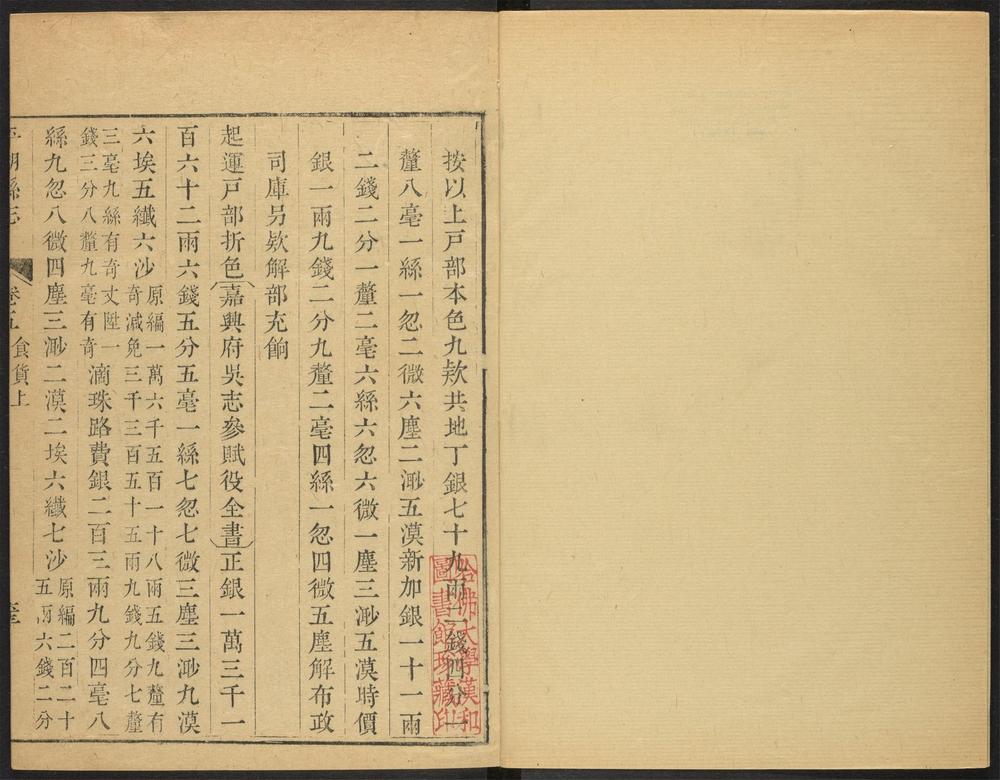 按以上戸部本色九欵共地丁銀七十九兩二錢四分一
釐八毫一絲一忽二微六塵二渺五漠新加銀一十一兩
二錢二分一釐二毫六絲六忽六微一塵三渺五漠時價
銀一兩九錢二分九釐二毫四絲一忽四微五塵解布政
司庫另欵解部充餉
起運戸部折色(嘉興府吳志參賦役全書)正銀一萬三千一
百六十二兩六錢五分五毫一絲七忽七微三塵三渺九漠
六埃五纖六沙
原編一萬六千五百一十八兩五錢九釐有
奇減免三千三百五十五兩九錢九分七釐
三毫九絲有奇丈陞一
錢三分八釐九毫有奇
滴珠路費銀二百三兩九分四毫八
絲九忽八微四塵三渺二漠二埃六纖七沙
原編二百二十
五兩六錢二分
平湖縣志 卷五 食貨上
哈佛大學漢和
圖書館珍藏印